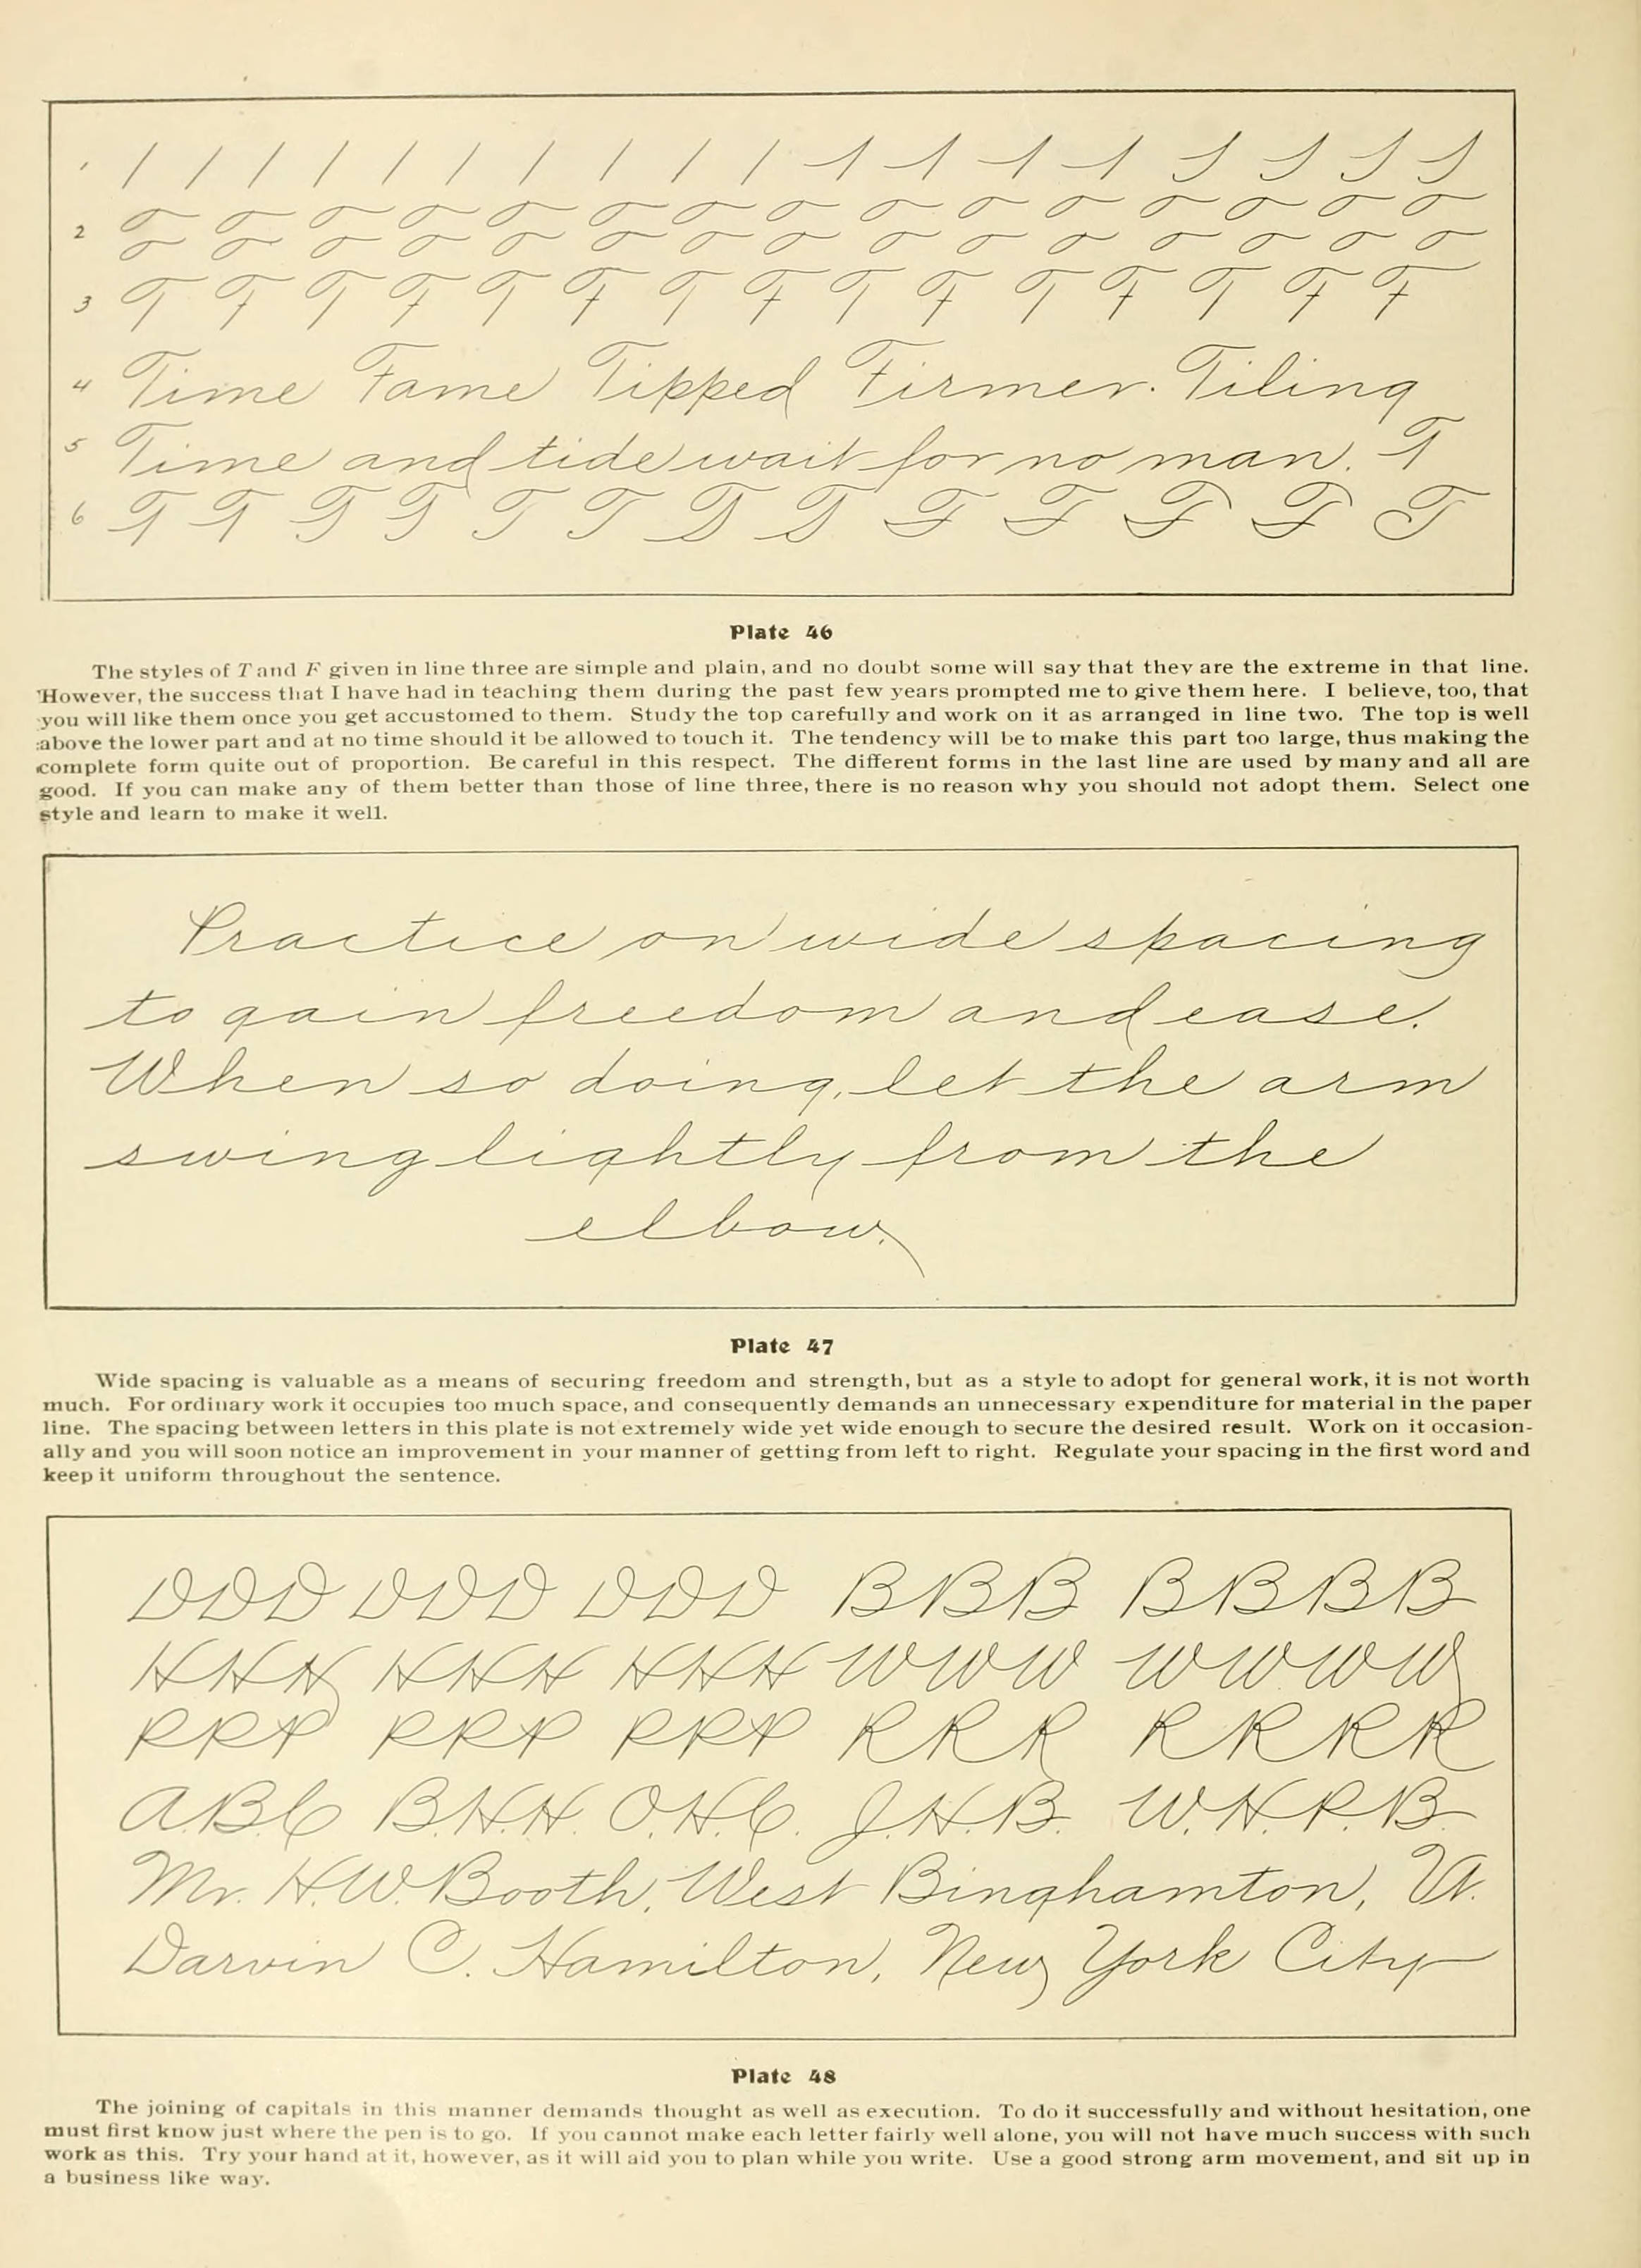 1 / / / / / / / / / /
2
3 T F T F T F T F T F T F T F F
4 Time Fame Tipped Firmer. Tiling
5 Time and tide wait for no man. T
6 T T T T T T T T F F F F T
Plate 46
The styles of T and F given in line three are simple and plain, and no doubt some will say that they are the extreme in that line.
However, the success that I have had in teaching them during the past few years prompted me to give them here. I believe, too, that
you will like them once you get accustomed to them. Study the top carefully and work on it as arranged in line two. The top is well
above the lower part and at no time should it be allowed to touch it. The tendency will be to make this part too large, thus making the
complete form quite out of proportion. Be careful in this respect. The different forms in the last line are used by many and all are
good. If you can make any of them better than those of line three, there is no reason why you should not adopt them. Select one
style and learn to make it well.
Practice on wide spacing
to gain freedom and ease.
When so doing, let the arm
swing lightly from the
elbow.
Plate 47
Wide spacing is valuable as a means of securing freedom and strength, but as a style to adopt for general work, it is not worth
much. For ordinary work it occupies too much space, and consequently demands an unnecessary expenditure for material in the paper
line. The spacing between letters in this plate is not extremely wide yet wide enough to secure the desired result. Work on it occasion-
ally and you will soon notice an improvement in your manner of getting from left to right. Regulate your spacing in the first word and
keep it uniform throughout the sentence.
DDD DDD DDD BBB BBBB
HHH HHH HHH WWW WWWW
PPP PPP PPP RRR RRRR
A.B.C B.H.H. O.H.C. J.H.B. W.H.P.B.
Mr. H.W. Booth, West Binghamton, Vt.
Darwin C. Hamilton, New York City
Plate 48
The joining of capitals in this manner demands thought as well as execution. To do it successfully and without hesitation, one
must first know just where the pen is to go. If you cannot make each letter fairly well alone, you will not have much success with such
work as this. Try your hand at it, however, as it will aid you to plan while you write. Use a good strong arm movement, and sit up in
a business like way.